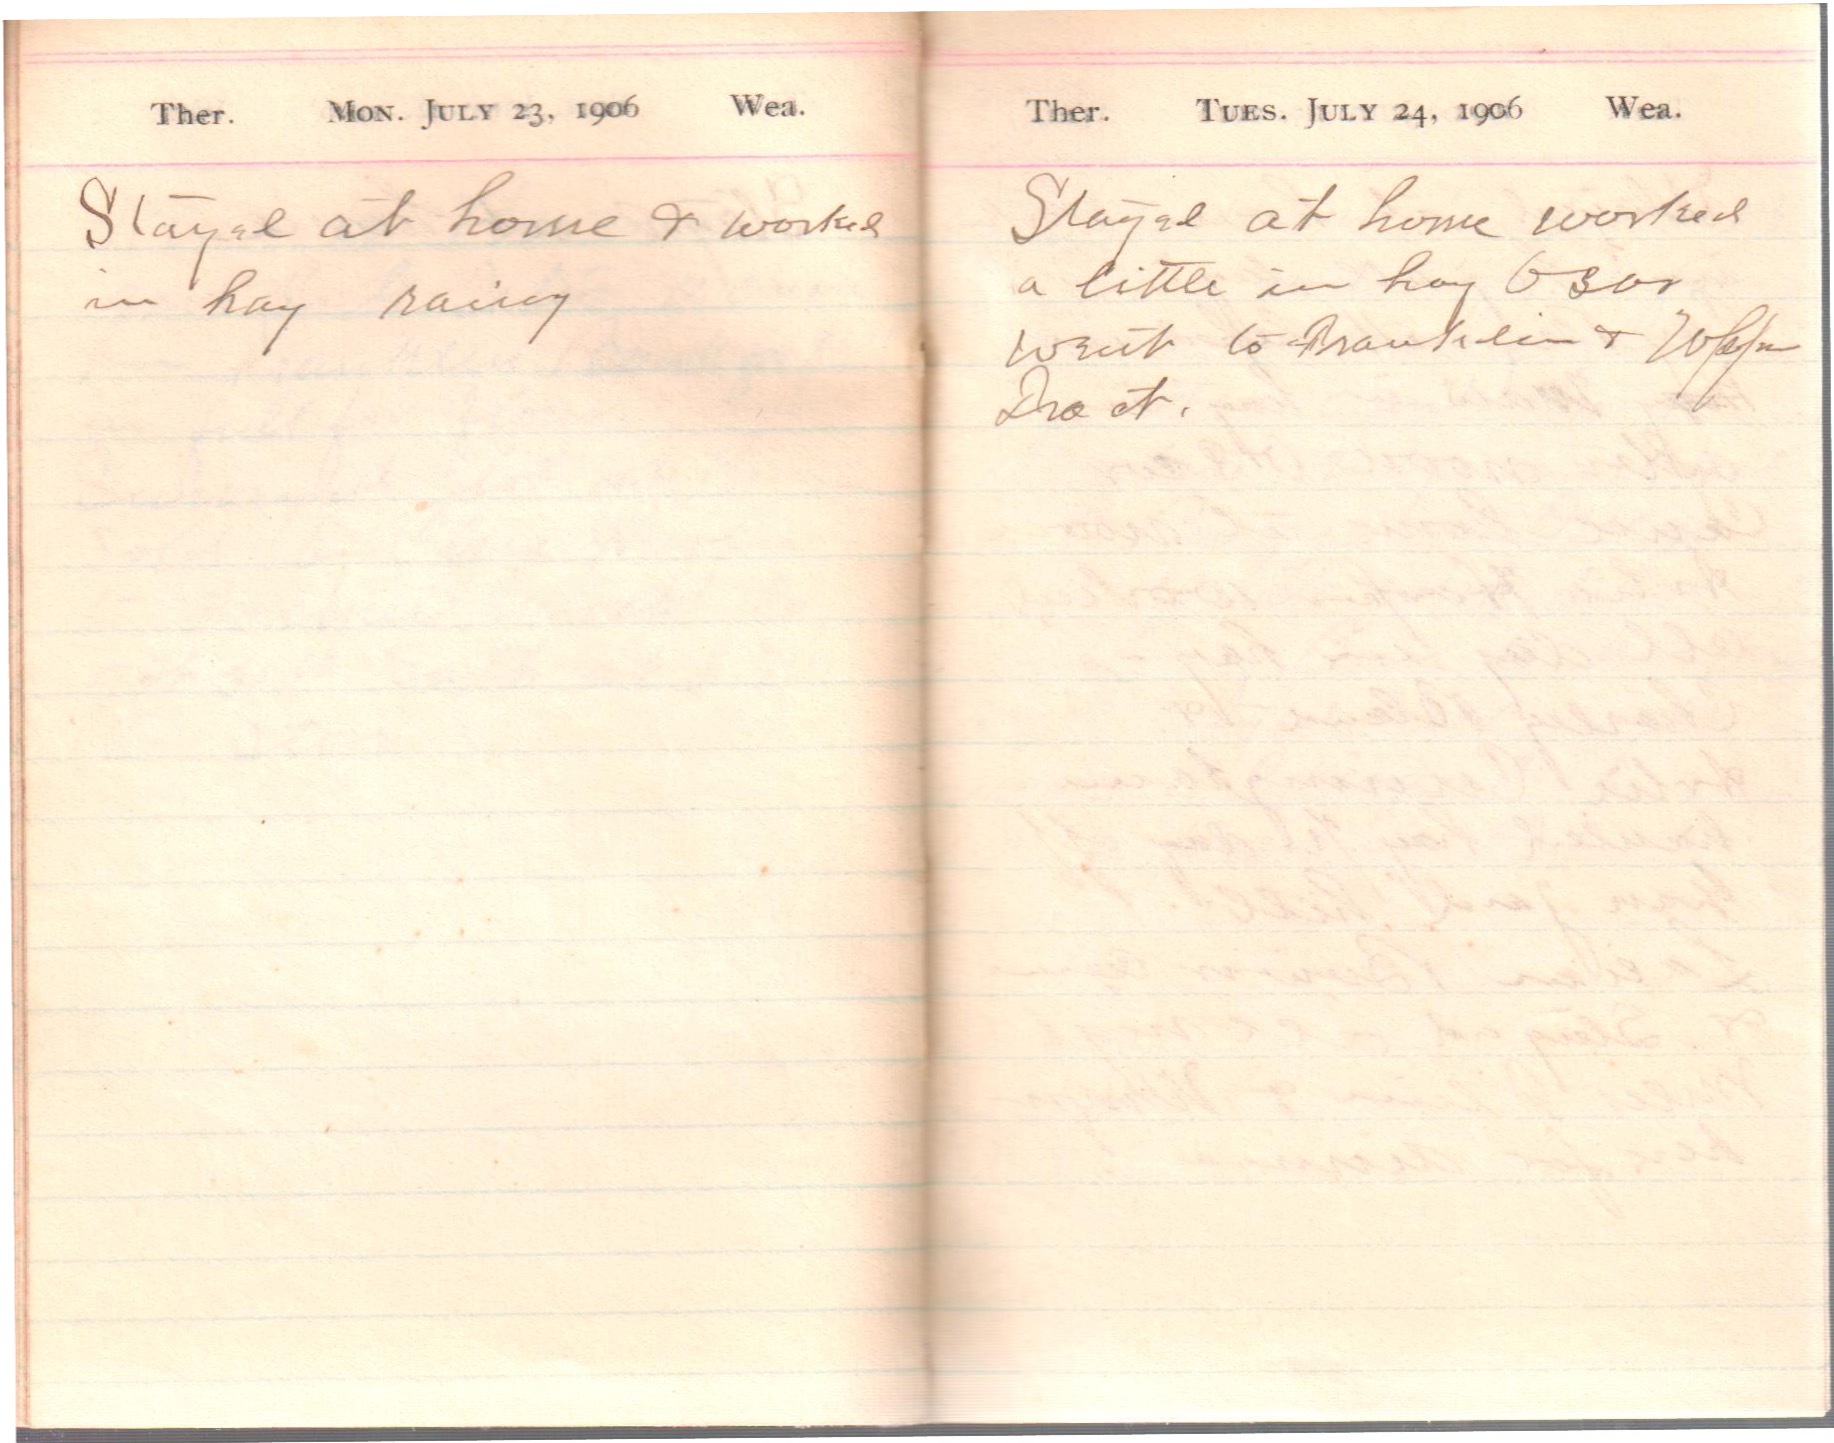 Ther. MON. JULY 23, 1906 Wea.
Stayed at home & worked
in hay rainy
Ther. TUES. JULY 24, 1906 Wea.
Stayed at home worked
a little in hay
went to Franklin &